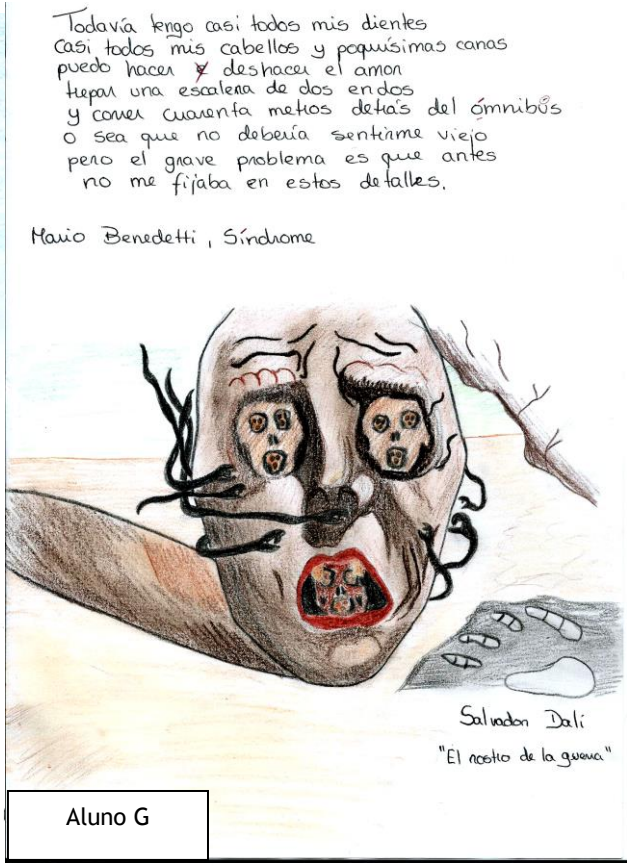 Todavía tengo casi todos mis dientes
casi todos mis cabellos y poquísimas canas
puedo hacer y deshacer el amor
trepar una escalera de dos en dos
y correr cuarenta metros detrás del ómnibus
o sea que no debería sentirme viejo
pero el grave problema es que antes
no me fijaba en estos detalles.
Mario Benedetti, Síndrome
Salvador Dalí
"El rostro de la guerra"
Aluno G